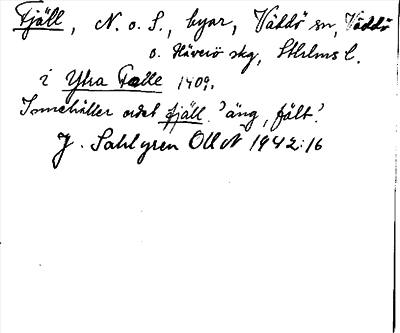 Fjäll, N. o. S., byar, Väddö sn, Väddö
o. Häverö skg, Sthlms l.
i Ytra Fælle 1409.
Innehåller ordet fjäll 'äng, fält'.
J. Sahlgren OLLN 1942:16